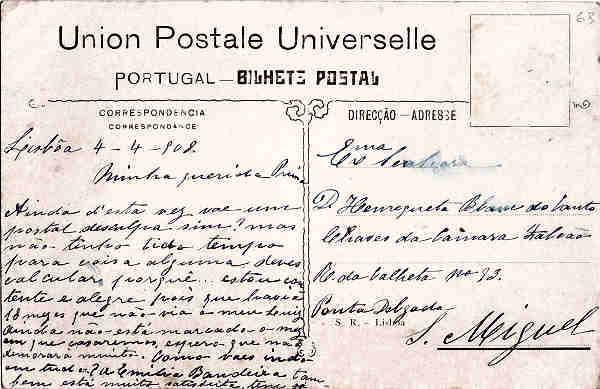 63
Union Postale Universelle
PORTUGAL — BILHETE POSTAL
CORRESPONDENCIA
CORRESPONDANCE
Lisbôa 4-4-908
Minha querida Prima
Ainda d'esta vez vae um
postal desculpa sim? mas
não tenho tido tempo
para coisa alguma deves
calcular porquê... estou con
tente e alegre pois que havia
18 mezes que não via o meu Luiz
ainda não está marcado o
em que casaremos, espero que não
demorará muito. Como vaes
em tudo? A Emilia Bandeira tam
bem está muito satisfeita,
DIRECÇÃO — ADRESSE
Ema
Ex Senhora
D. Henriqueta do Canto
Chaves da Camara Falcão
R. da Valheta nº 93.
Ponta Delgada
S. R. - Lisboa
S. Miguel